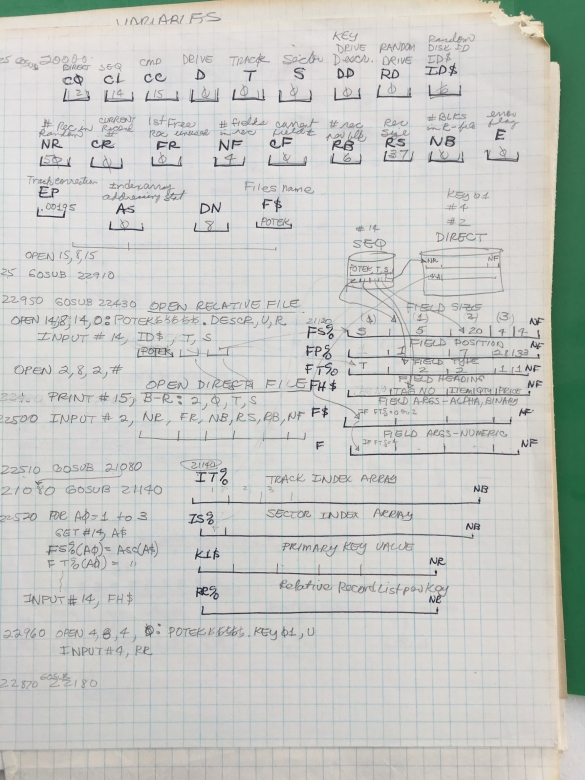 VARIABLES
GOSUB 20000
DIRECT SEQ CMD DRIVE TRACK Sector KEY DRIVE Descr. RANDOM DRIVE Random DISK ID
CQ CL CC D T S DD RD ID$
2 14 15 0 0 0 0 0 6
# Rec in Random CURRENT Record # 1st Free Rec unused # fields in rec current field # # rec Rec Size # BLKS in R-file error flag
NR CR FR NF CF RB RS NB E
50 0 0 4 0 6 37 0 0
Track correction Index array addressing stat Files name
EP AS DN F$
.00195 0 8 POTEK
KEY 01
#4
#14 #2
SEQ DIRECT
OPEN 15,8,15
25 GOSUB 22910
POTEK, T, S
NR NF
22950 GOSUB 22430 OPEN RELATIVE FILE
FIELD SIZE
OPEN 14,8,14,0: POTEK. DESCR, U, R
21120
FS% 5 5 20 4 4 NF
INPUT #14, ID$, T, S
FIELD POSITION
POTEK
FP% 1 7 NF
FIELD TYPE
OPEN 2,8,2,#
FT% 2 2 1 1 NF
FIELD HEADING
OPEN DIRECT FILE
FH$ ITEM QTY PRICE NF
PRINT #15, B-R: 2, 0, T, S
FIELD ARGS-ALPHA, BINARY
F$ NF
22500 INPUT #2, NR, FR, NB, RS, RB, NF
FIELD ARGS-NUMERIC
F NF
22510 GOSUB 21080
21140
21080 GOSUB 21140
IT% TRACK INDEX ARRAY NB
22520 FOR A0 = 1 to 3
IS% SECTOR INDEX ARRAY NB
GET #14, A$
FS%(A0) = Asc(A$)
K1$ PRIMARY KEY VALUE NR
FT%(A0) = "
RR% Relative Record List per Key NR
INPUT #14, FH$
22960 OPEN 4,8,4, 0: POTEK. KEY 01, U
INPUT #4, RR
22870 GOSUB 22180